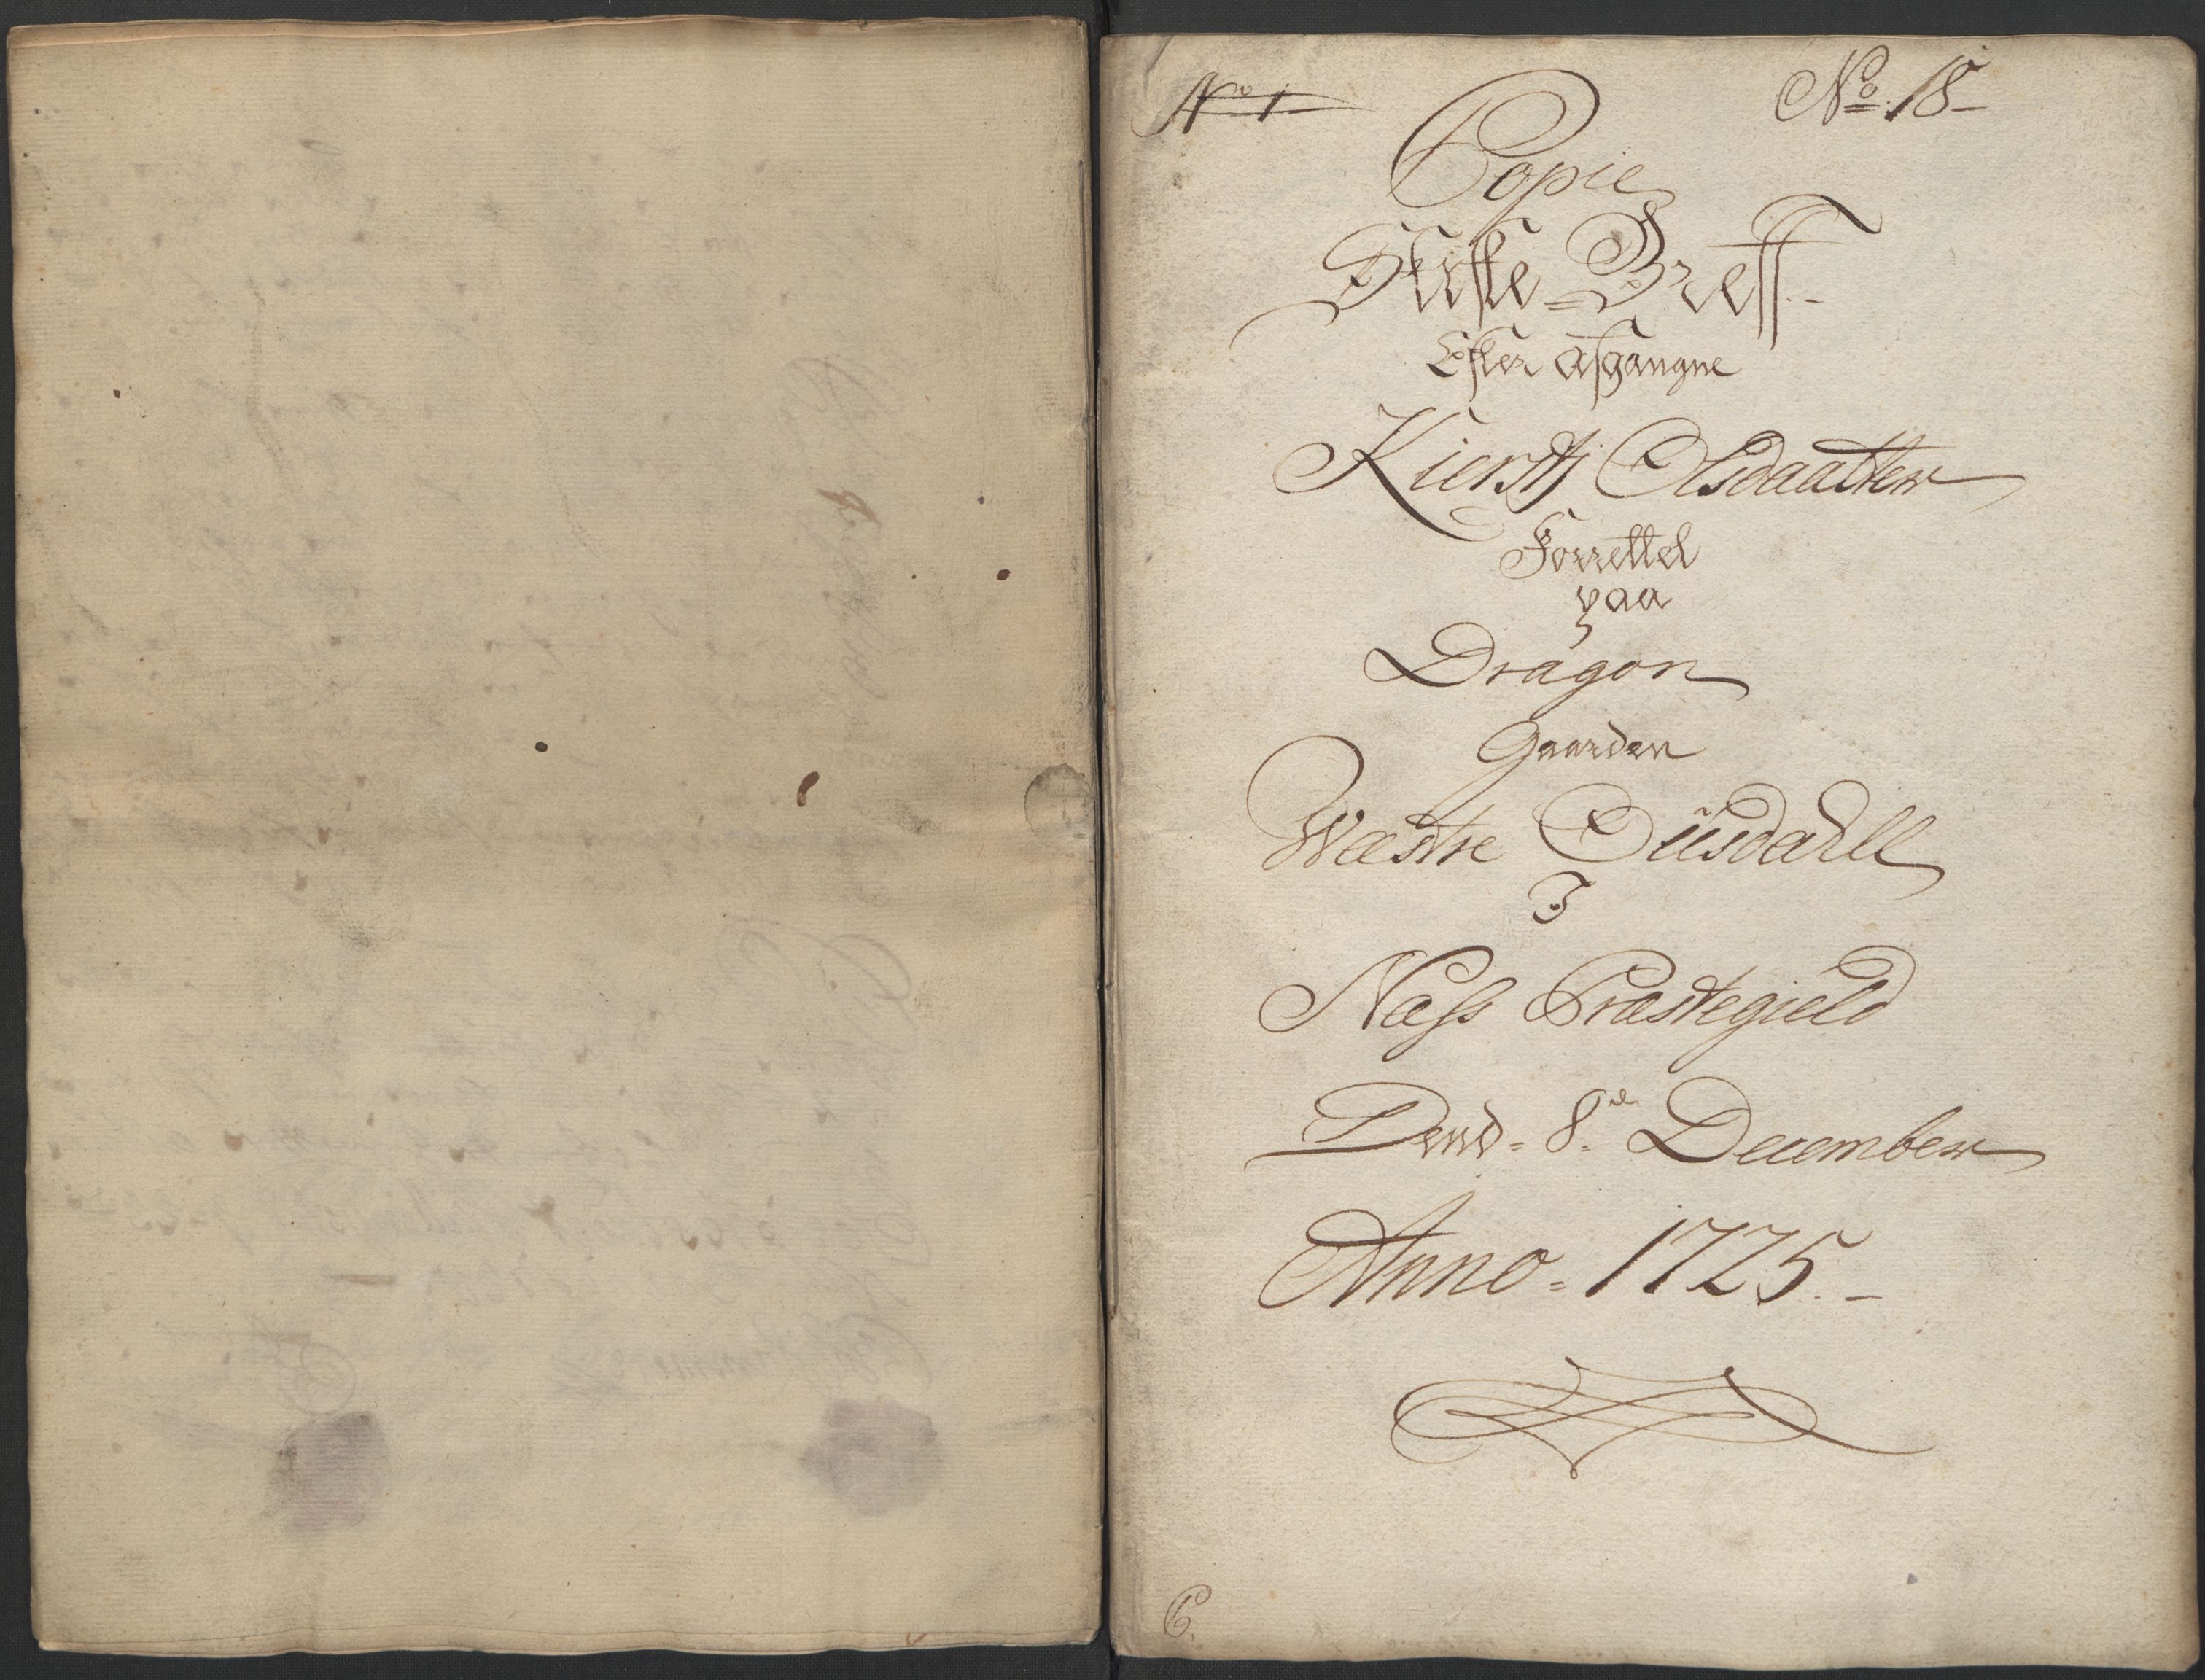 No 1
No. 18
Copie
Skifte-Breff
Efter afgangne
Kierstj Olsdaatter
Forrettet
paa
Dragon
Gaarden
Wæstre
I
Næss Præstegield
Dend 8de December
Anno 1725